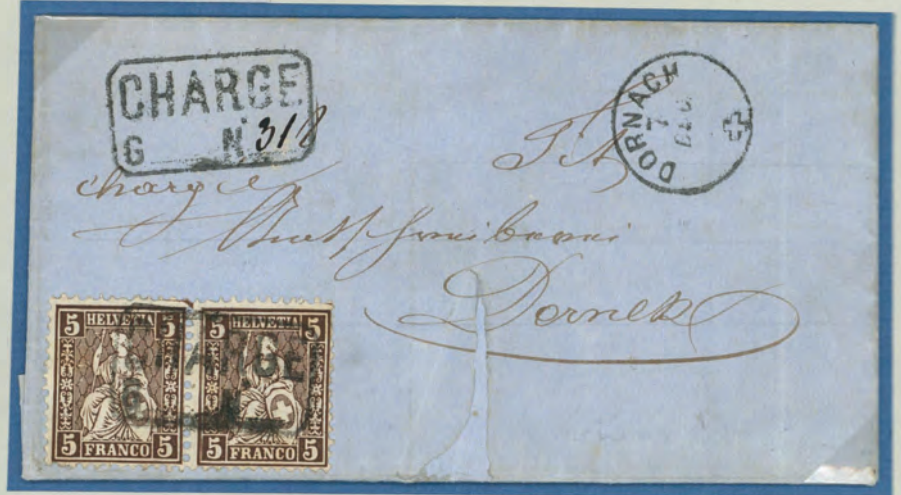 CHARGE
G N. 318
DORNACH
7
DEC
T. A.
chargé
Amtschreiberei
Dornek
5 HELVETIA 5
5 FRANCO 5
5 HELVETIA 5
5 FRANCO 5